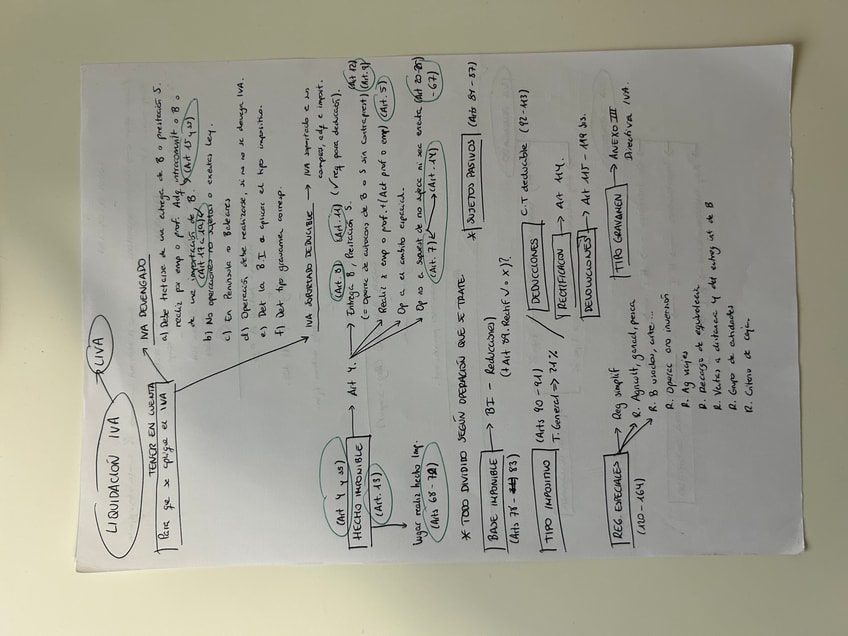 LIQUIDACIÓN IVA → LIVA
TENER EN CUENTA
Para q se aplique el IVA
IVA DEVENGADO
a) Debe tratarse de una entrega de B o prestación S.
realiz por emp o prof. Adq intracomunit o B o
de una importación de B. (Art 15 y ss)
(Art 17 - 19)
b) No operaciones no sujetas o exentas Ley.
c) En Península o Baleares
d) Operación debe realizarse, si no no se devenga IVA.
e) Det la B.I a aplicar el tipo impositivo.
f) Det tipo gravamen corresp.
IVA SOPORTADO DEDUCIBLE → IVA soportado e sus
compras, adq e import.
(✓ req para deducción).
(Art 4 y ss)
HECHO IMPONIBLE → Art 4.
(Art. 13)
(Art. 8) (Art. 11)
Entrega B, Prestación S.
(= operac de autocons de B o S sin contraprest) (Art 12) (Art. 9)
Realiz x emp o prof. + (Act prof o emp) (Art. 5)
Op a el ambito espacial.
Op no a supuest de no sujec ni sea exenta (Art 20-25 - 67)
(Art. 7) (Art. 14)
lugar realiz hecho Imp.
(Arts 68 - 72)
* TODO DIVIDIDO SEGÚN OPERACIÓN QUE SE TRATE
* SUJETOS PASIVOS (Arts 84 - 87)
BASE IMPONIBLE → BI - Reducciones)
(Arts 78 - 83) (+ Art 89. Rectif ✓ o x)?
TIPO IMPOSITIVO (Arts 90 - 91)
T. General => 21%
DEDUCCIONES C.T deducible (92 - 113)
RECTIFICACION → Art 114.
DEVOLUCIONES → Art 115 - 119 bis.
TIPO GRAVAMEN → ANEXO III
Directiva IVA.
REG. ESPECIALES → Reg simplif
(120 - 164)
R. Agricult, ganad, pesca
R. B usados, arte...
R. Operac oro inversión
R. Ag viajes
R. Recargo de equivalencia
R. Ventas a distanc y det entreg int de B
R. Grupo de entidades
R. Criterio de caja.